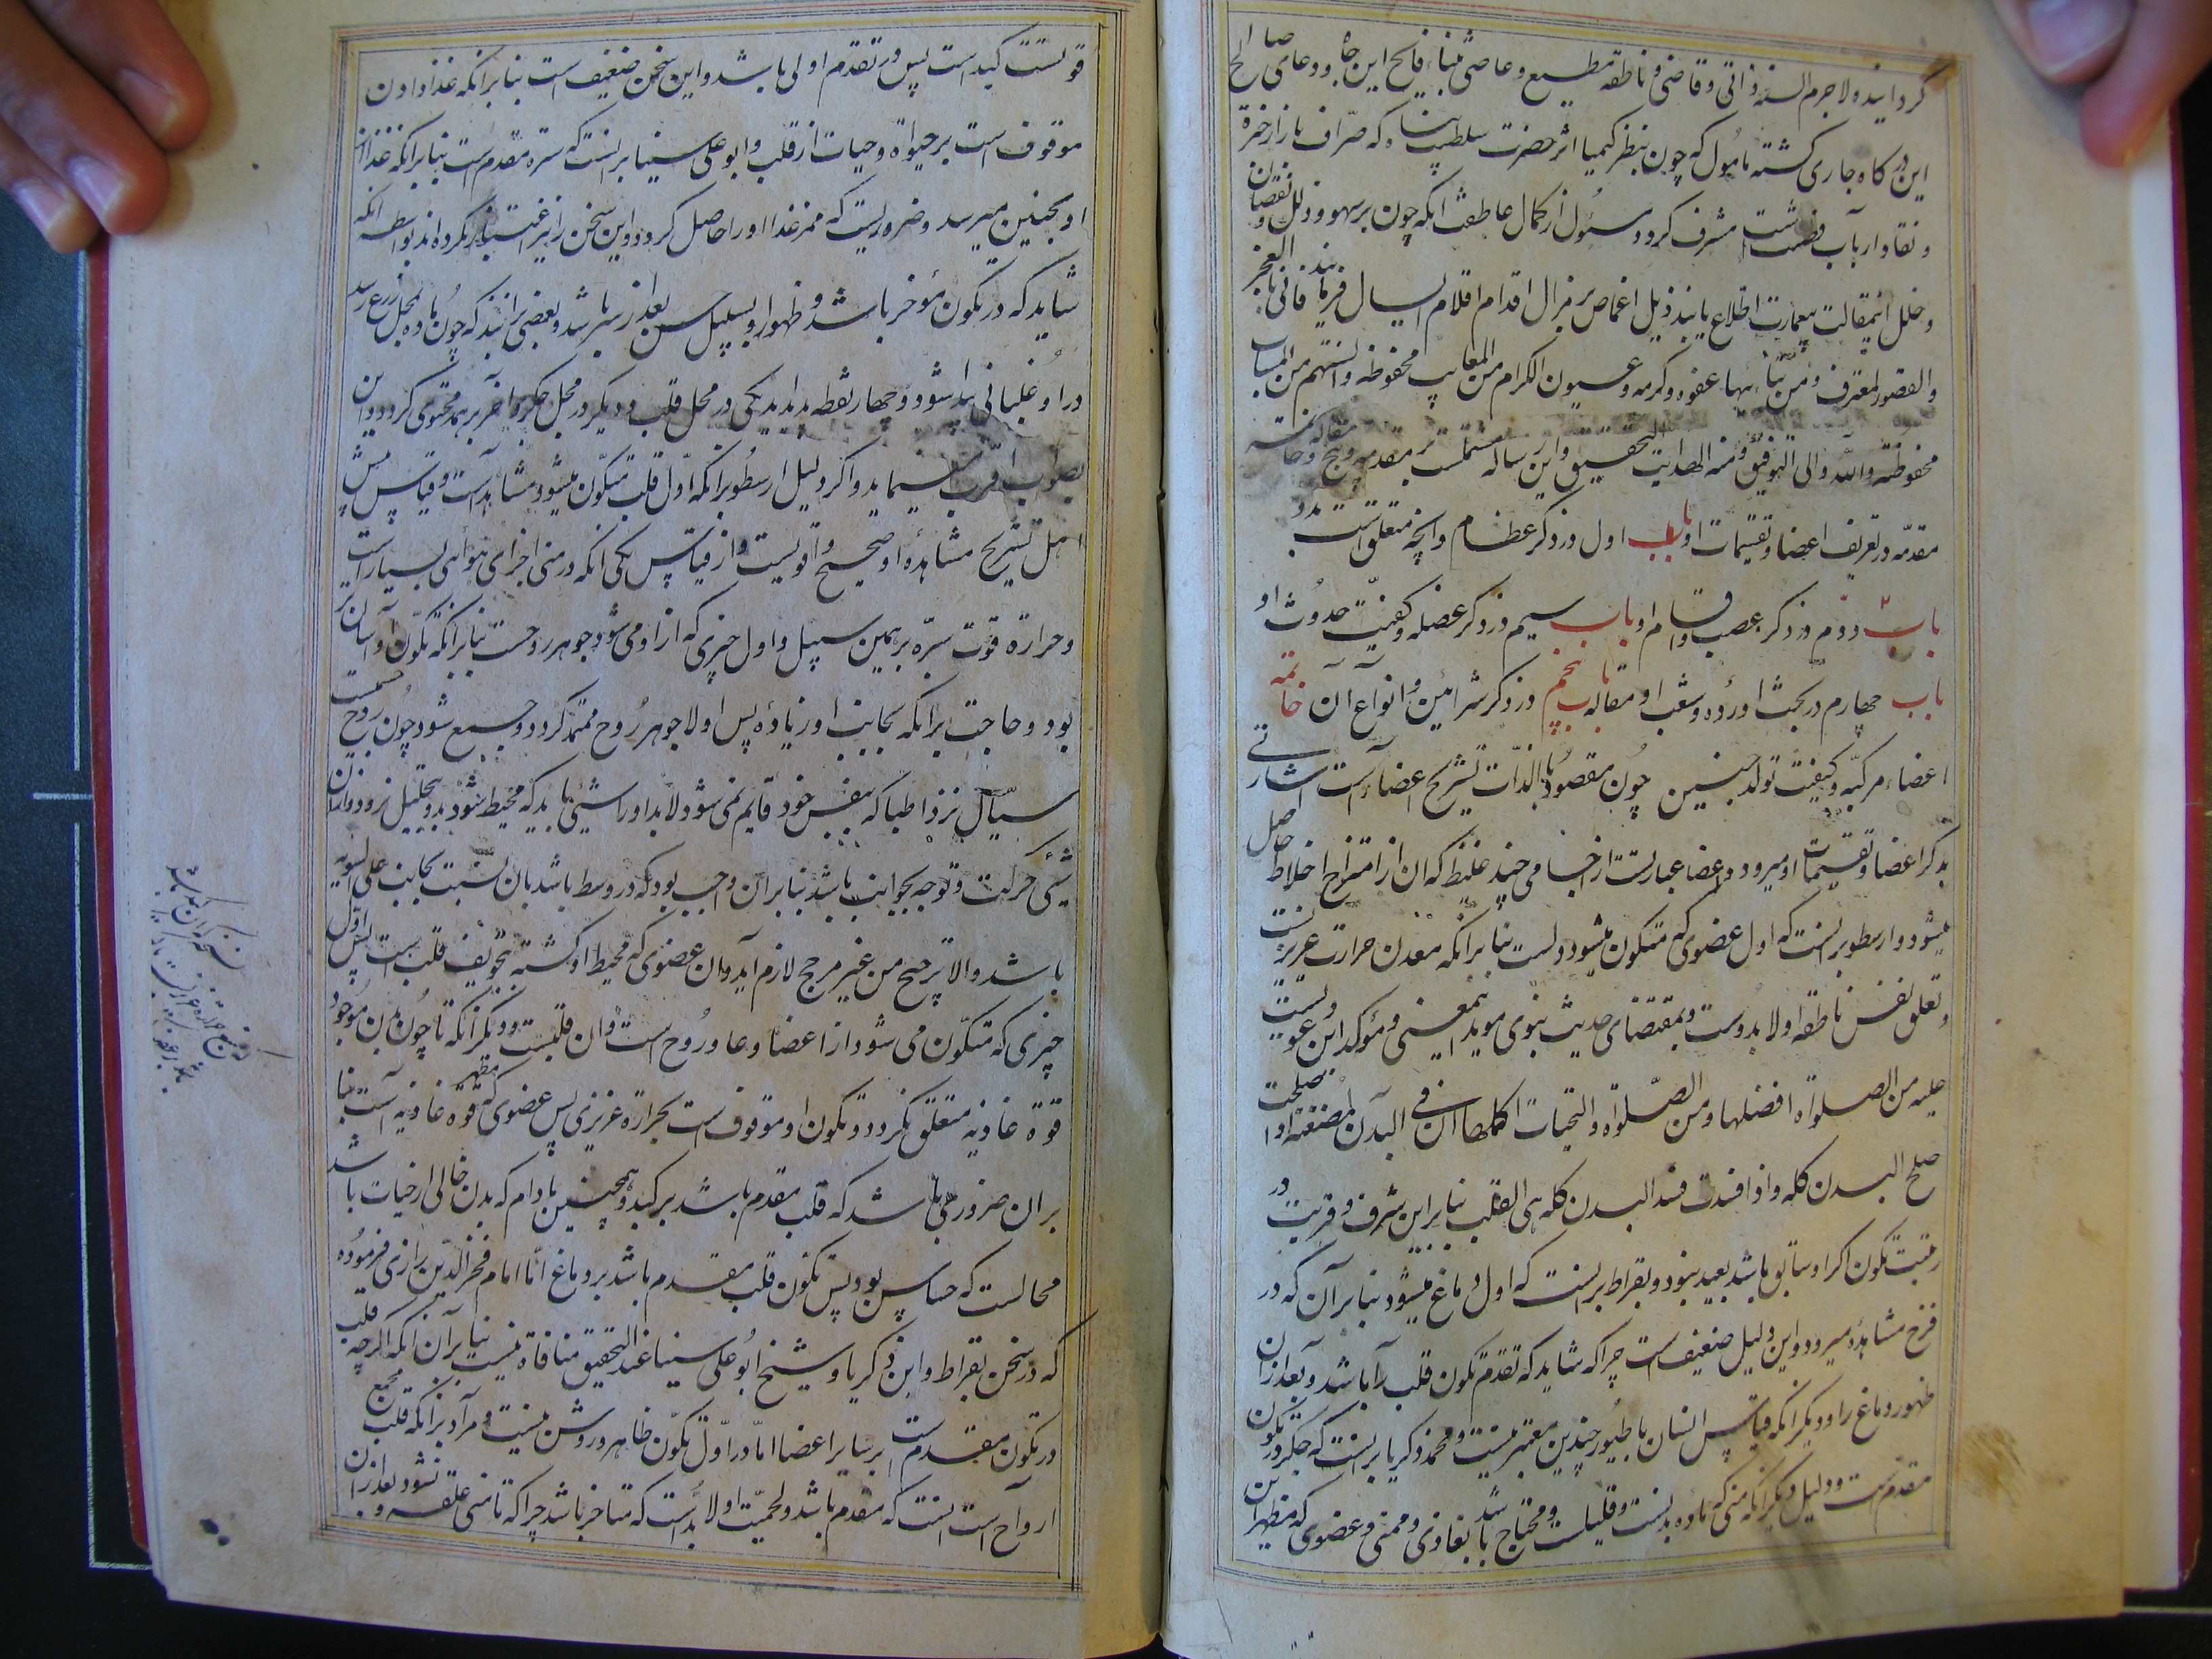 گردانیده لاجرم السنه ذاتی و قاضی و ناطقه مطیع و عاصی بثنا فایح این جا و دعای صالح
این درگاه جاری گشته مأمول که چون بنظر کیمیا اثر حضرت سلطنت پناه که صراف بازار خبره
و نقاد ارباب فضلست مشرف گردد و مسئول از کمال عاطفت آنکه چون بر سهو و زلل و نقصان
و خلل این مقالت اطلاع یابند ذیل اغماض بر مزال اقدام اقلام ارسال فرمایند فانی بالعجز
والقصور لمعترف و من بهاء عفوه و کرمه و عیون الکرام من المعایب محفوظه و السنتهم من المثالب
محفوظه والله ولی التوفیق و منه الهدایت التحقیق و این رساله مشتملست بر مقدمه و پنج مقاله و خاتمه
مقدمه در تعریف اعضا و تقسیمات او باب اول در ذکر عظام و آنچه متعلق است بدو
باب دوم در ذکر عصب و اقسام او باب سیم در ذکر عضله و کیفیت حدوث او
باب چهارم در بحث اورده و شعب او مقاله باب پنجم در ذکر شرائین و انواع آن خاتمه
اعضاء مرکبه و کیفیت تولد جنین چون مقصود بالذات تشریح اعضاء است اشارتی
بذکر اعضا و تقسیمات او میرود و اعضا عبارتست از اجسامی چند غلیظ که آن از امتزاج اخلاط حاصل
میشود و ارسطو برانست که اول عضوی که متکون میشود دلست بنا بر آنکه معدن حرارت غریزیست
و تعلق نفس ناطقه اولا بدوست و بمقتضای حدیث نبوی موید این معنی و مؤکد این دعویست
علیه من الصلواة افضلها و من الصلواة والتحیات اکملها ان فی البدن لمضغة اذا صلحت
صلح البدن کله و اذا فسدت فسد البدن کله هی القلب بنا بر این شرف و قربت در
رتبت تکون اگر او سابق باشد بعید نبود و بقراط برانست که اول دماغ میشود بنا بر آن که در
فرخ مشاهده میرود و این دلیل ضعیف است چرا که شاید که تقدم تکون قلب را باشد و بعد از آن
ظهور دماغ را و دیگر آنکه قیاس انسان با طیور چندین معتبر نیست و محمد زکریا برانست که جگر در تکون
مقدم است و دلیل دیگر آنکه منی که ماده بدنست قلیلست و محتاج باشد بغاذی و منمی و عضوی که مظهر این
قوتست کبد است پس در تقدم اولی باشد و این سخن ضعیف است بنا بر آنکه غذا دادن
موقوف است بر حیوة و حیات از قلب و ابو علی سینا برانست که سره مقدم است بنا بر آنکه غذا از
او بجنین میرسد و ضروریست که ممر غذا او را حاصل گردد و این سخن را نیز اعتبار نکرده اند بواسطه آنکه
شاید که در تکون مؤخر باشد و ظهور او بسبیل حس بعد از سر باشد و بعضی برانند که چون ماده بمحل زرع رسد
در او غلیانی پیدا شود و چهار نقطه پدید آید یکی در محل قلب و دیگر در محل جگر و آخر بر همه محتوی گردد و این
بصواب اقرب مینماید و اگر دلیل ارسطو برانکه اول قلب متکون میشود مشاهد است و قیاس پیش
اهل تشریح مشاهده او صحیح و اولیست و از قیاس یکی آنکه در منی اجزای هوائی بسیار است
و حرارة قوت سره بر همین سبیل و اول چیزی که از او می شود جوهر روحست بنا بر آنکه تکون او آسان تر
بود و حاجت برانکه بجانب او زیاده پس اولا جوهر روح متمد گردد و جمع شود چون روح جسمست
سیال نزد اطبا که بنفس خود قایم نمی شود لابد او را شیئی باید که محیط شود بدو بتحلیل نرود و از آن
شیئی حرکت و توجه بجوانب باشد بنا بر آن واجب بود که در وسط باشد بان نسبت بجانب علی السویه
باشد والا ترجیح من غیر مرجح لازم آید و آن عضوی که محیط او گشته تجویف قلب است پس اول
چیزی که متکون می شود از اعضا وعاء روح است و آن قلبست و دیگر آنکه تا چون بدن موجود
قوة غاذیه متعلق نگردد و تکون او موقوف است بحرارة غریزی پس عضوی که مظهر قوة غاذیه است بنا
بر آن ضروری باشد که قلب مقدم باشد بر کبد و همچنین مادام که بدن خالی از حیات باشد
محالست که حساس بود پس تکون قلب مقدم باشد بر دماغ اما امام فخر الدین رازی فرموده
که در سخن بقراط و ابن زکریا و شیخ ابو علی سینا عند التحقیق منافاة نیست بنا بر آن آنکه اگر چه قلب
در تکون مقدم است بر سایر اعضا اما در اول تکون ظاهر و روشن نیست و مراد برانکه قلب مجمع
ارواح است انست که مقدم باشد و لحمیت اولا بد است که متاخر باشد چرا که تا منی علقه نشود بعد از آن